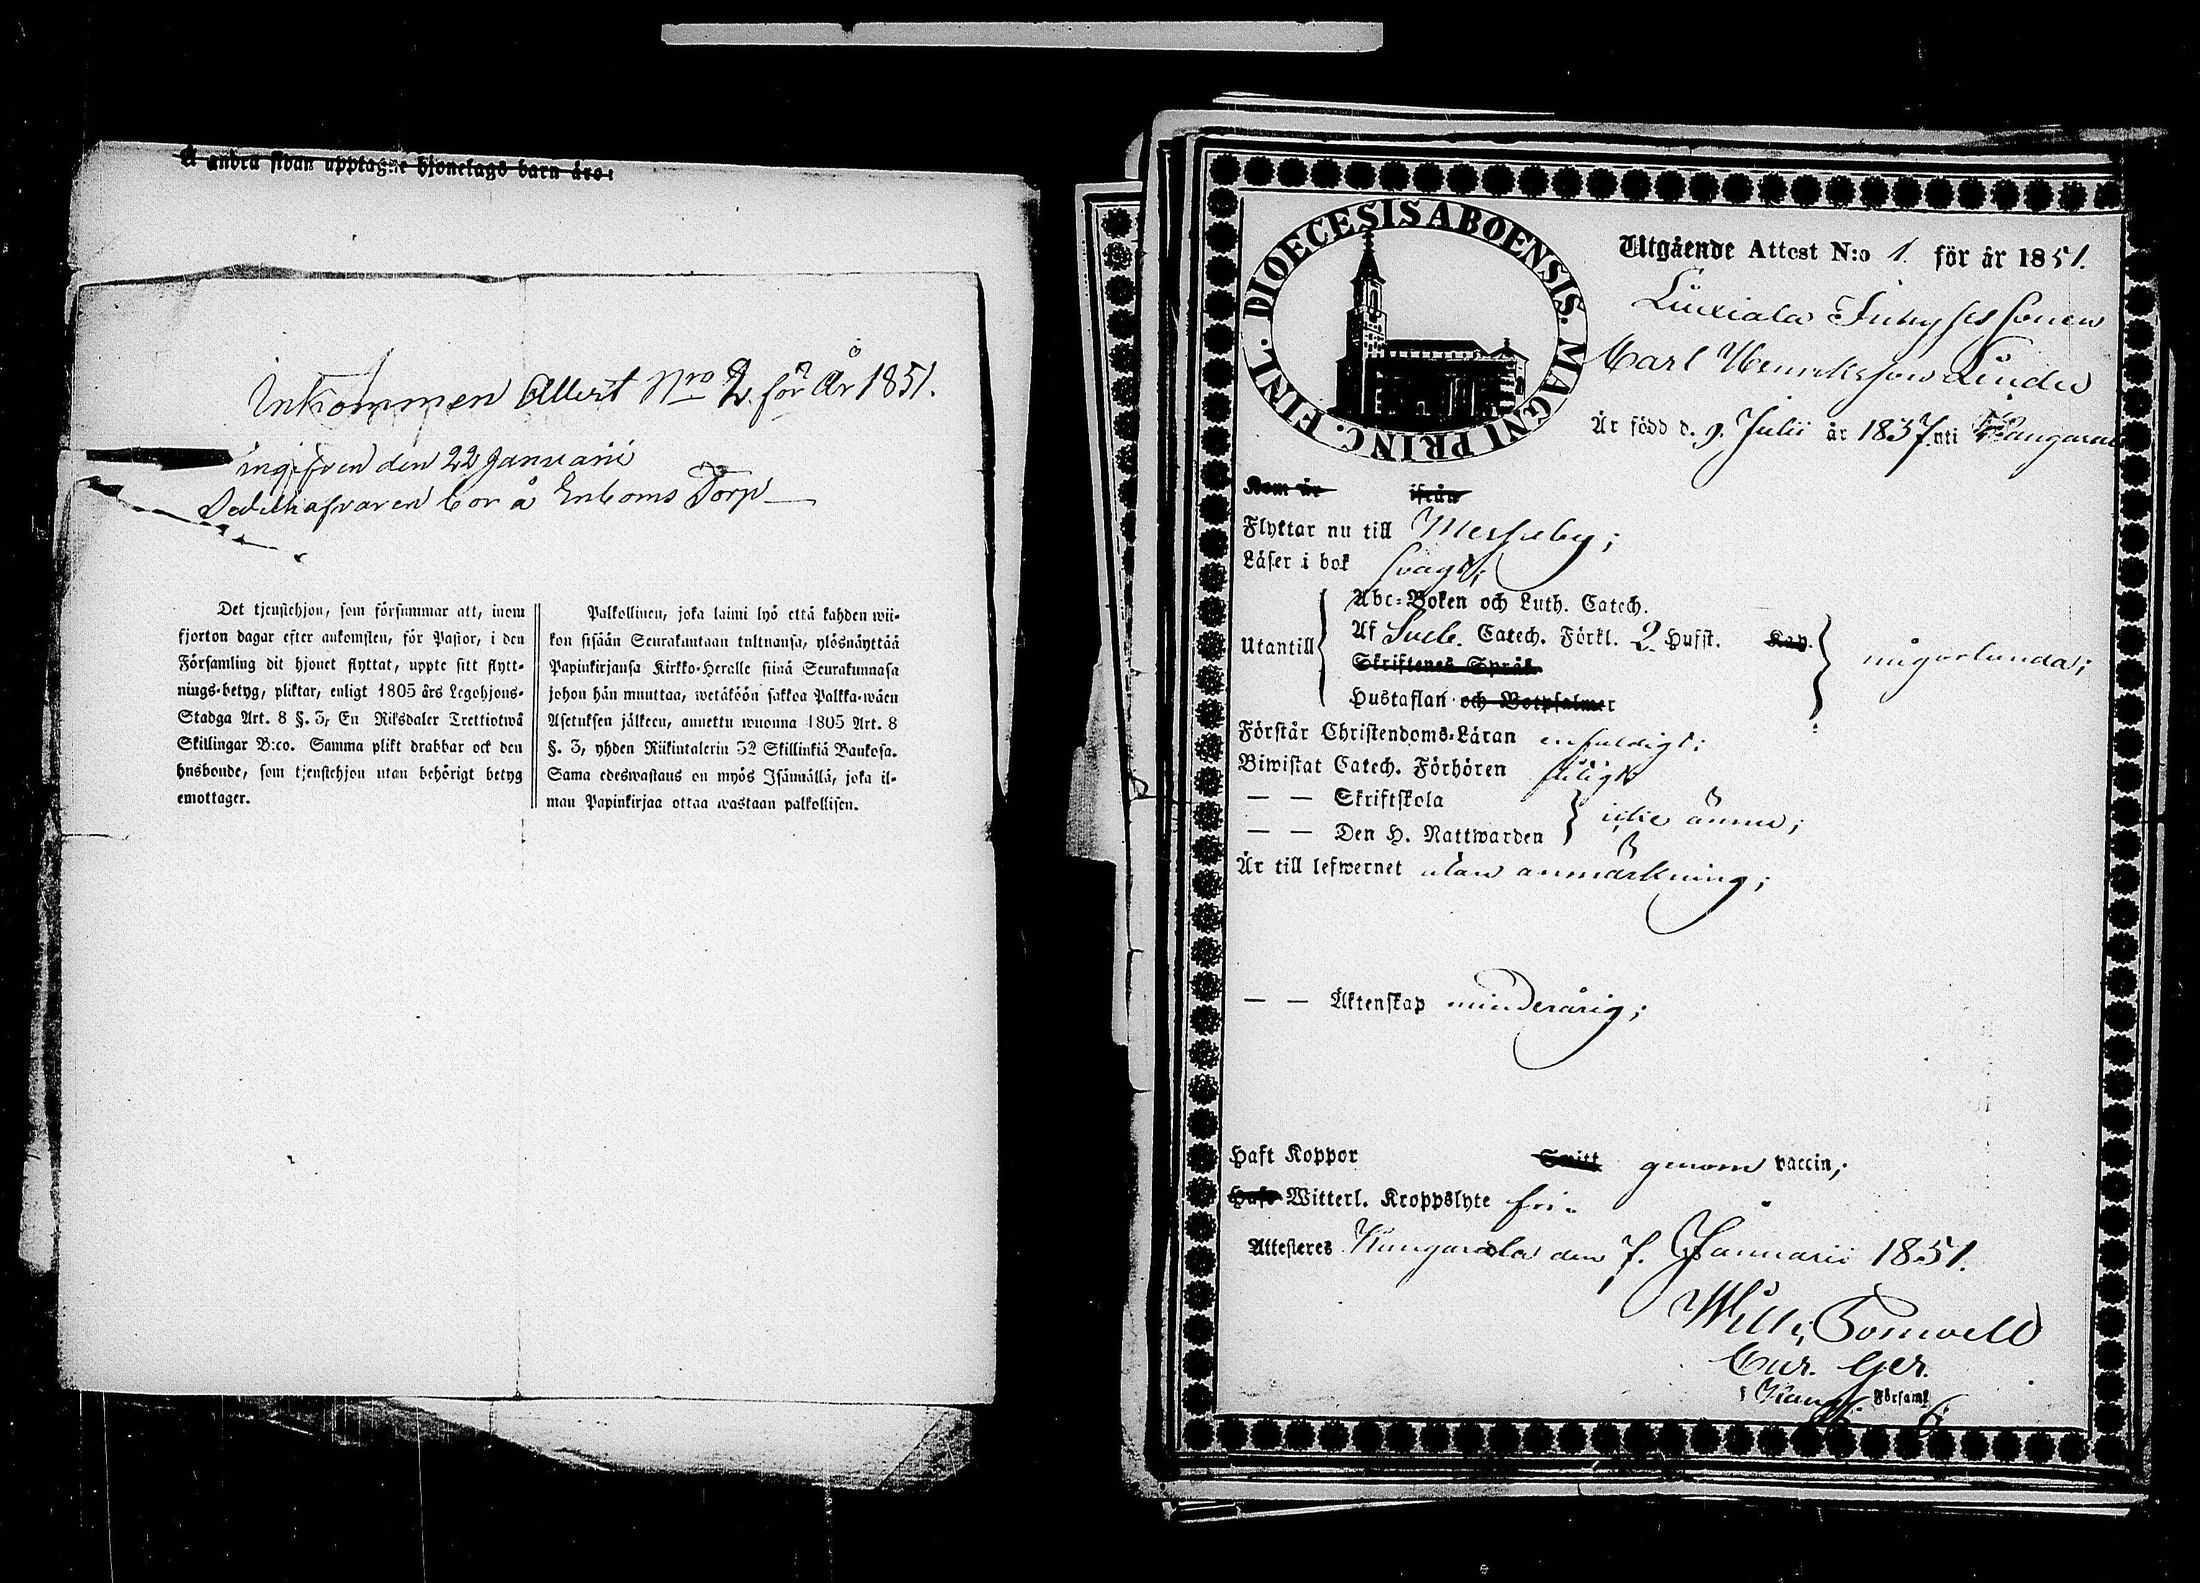 Å andra sidan upptagne hjonelags barn äro:
Inkommen Attest Nro 2. för År 1851.
ingifven den 22 Januarii
Bor å Enboms Torp
Det tjenstehjon, som försummar att, inom
fjorton dagar efter ankomsten, för Pastor, i den
Församling dit hjonet flyttat, uppte sitt flytt-
nings-betyg, pliktar, enligt 1805 års Legohjons-
Stadga Art. 8 §. 3, En Riksdaler Trettiotwå
Skillingar B:co. Samma plikt drabbar ock den
husbonde, som tjenstehjon utan behörigt betyg
emottager.
Palkollinen, joka laimi lyö että kahden wii-
kon sisään Seurakuntaan tultuansa, ylösnäyttää
Papinkirjansa Kirkko-Heralle siinä Seurakunnasa
johon hän muuttaa, wetäköön sakkoa Palkka-wäen
Asetuksen jälkeen, annettu wuonna 1805 Art. 8
§. 3, yhden Riikintalerin 32 Skillinkiä Bankosa.
Sama edeswastaus on myös Isännällä, joka il-
man Papinkirjaa ottaa wastaan palkollisen.
DIOECESIS ABOENSIS. MAGNI PRINC. FINL.
Utgående Attest N:o 1. för år 1851.
Liuxiala Inhyses Sonen
Carl Henriksson Linder
Är född d. 9. Julii år 1837. uti Kangasala
Kom år ifrån
Flyttar nu till Messuby;
Läser i bok svagt;
Utantill
Abc-Boken och Luth. Catech.
Af Sveb. Catech. Förkl. 2. Hufst. Kap.
Skriftenes Språk
Hustaflan och Botpsalmer
någorlunda;
Förstår Christendoms-Läran enfaldigt;
Biwistat Catech. Förhören flitigt
— — Skriftskola
— — Den H. Nattwarden
icke ännu;
Är till lefwernet utan anmärkning;
— — Äktenskap minderårig;
Haft Koppor Smitt genom vaccin;
Haft Witterl. Kroppslyte fri.
Attesteres Kangasala den 7. Januarii 1851.
Cur. Ger.
i Kang. Församl